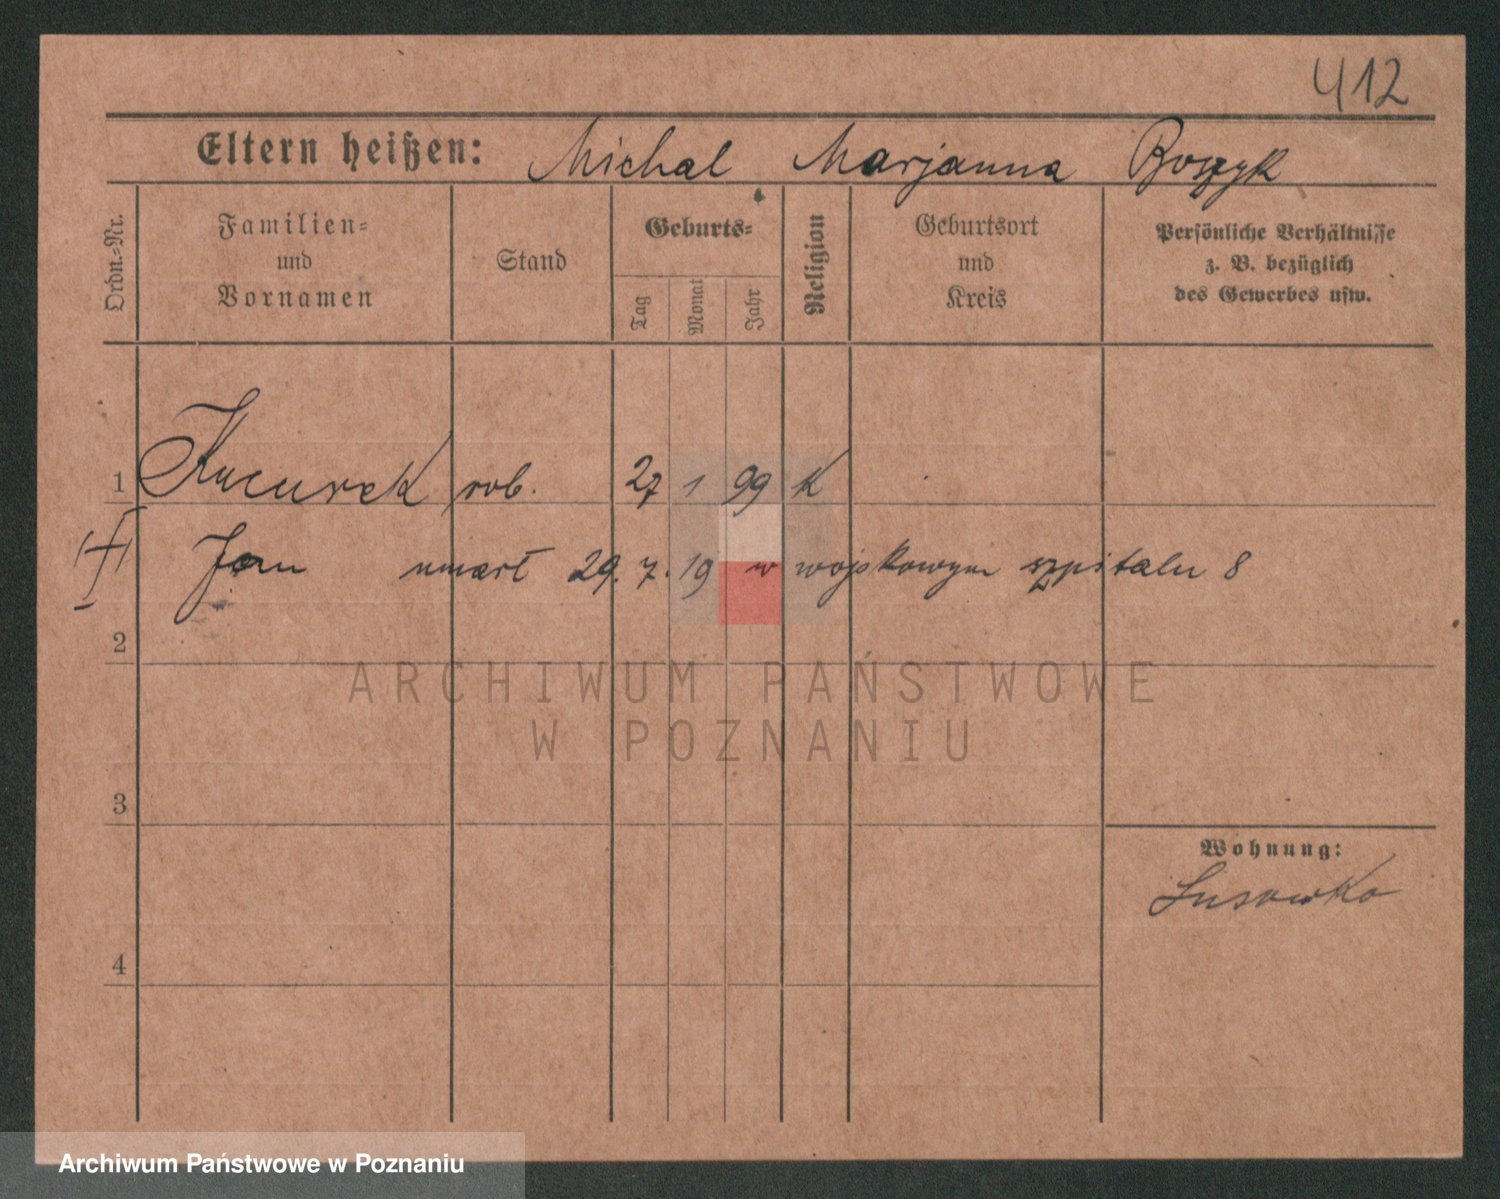 412
Eltern heißen: Michal Marjanna Boszyk
Ordn.-Nr.
Familien-
und
Vornamen
Stand
Geburts-
Tag
Monat
Jahr
Religion
Geburtsort
und
Kreis
Persönliche Verhältnisse
z. B. bezüglich
des Gewerbes usw.
1 Kucurek rob. 27 1 99 K
Jan umarł 29. 7. 19 w wojskowym szpitalu 8
2
ARCHIWUM PAŃSTWOWE
W POZNANIU
3
Wohnung:
Lusowko
4
Archiwum Państwowe w Poznaniu